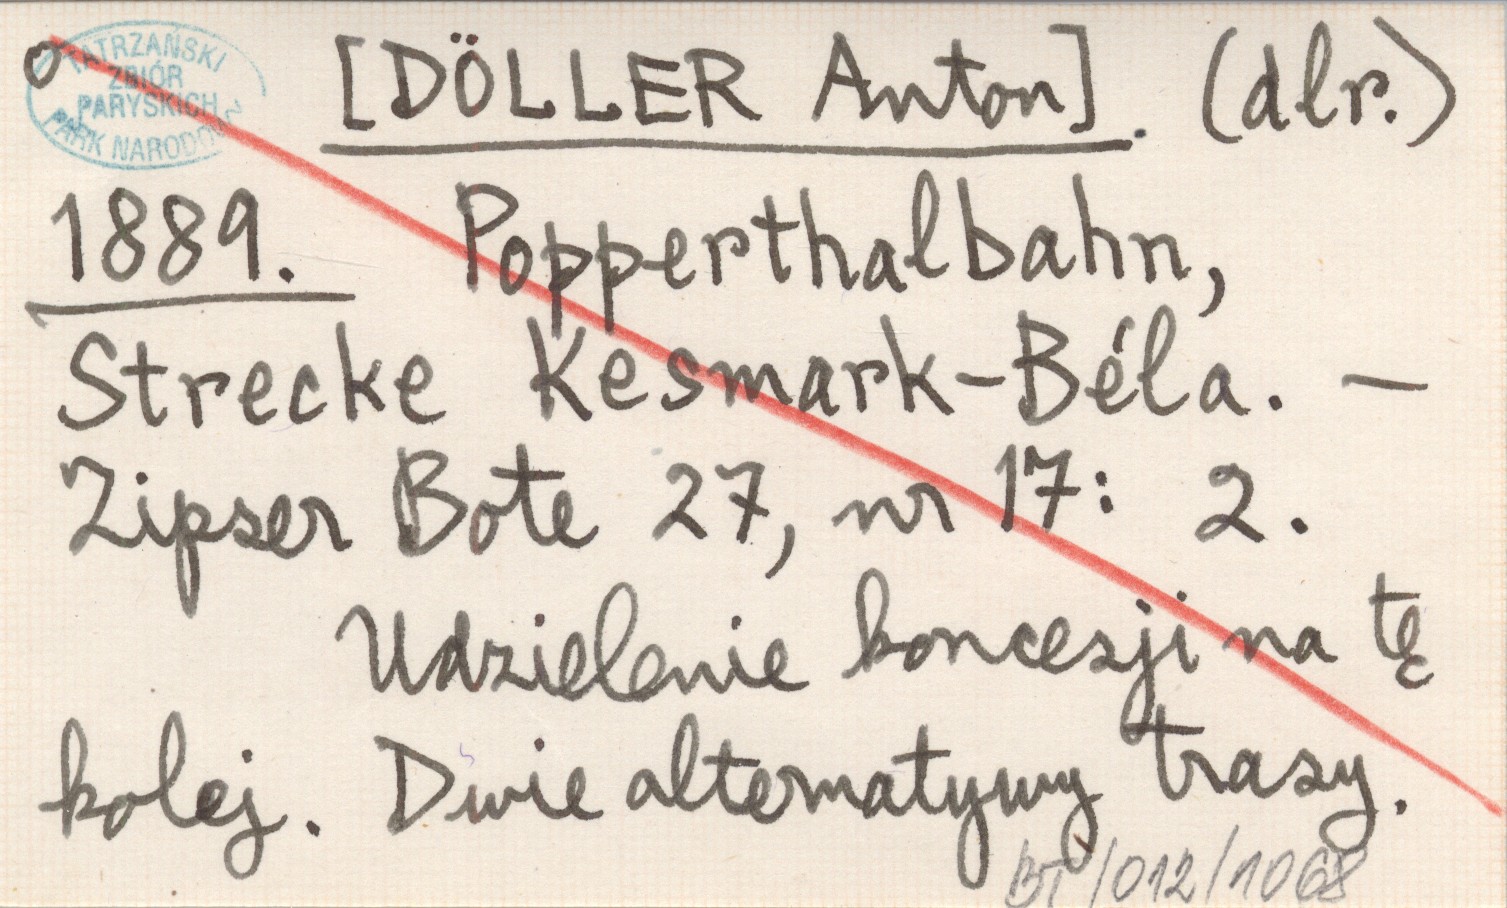 o
TATRZAŃSKI
ZBIÓR
PARYSKICH
PARK NARODOWY
[DÖLLER Anton]. (dlr.)
1889. Popperthalbahn,
Strecke Kesmark-Béla. —
Zipser Bote 27, nr 17: 2.
Udzielenie koncesji na tę
kolej. Dwie alternatywy trasy.
BT/012/1068